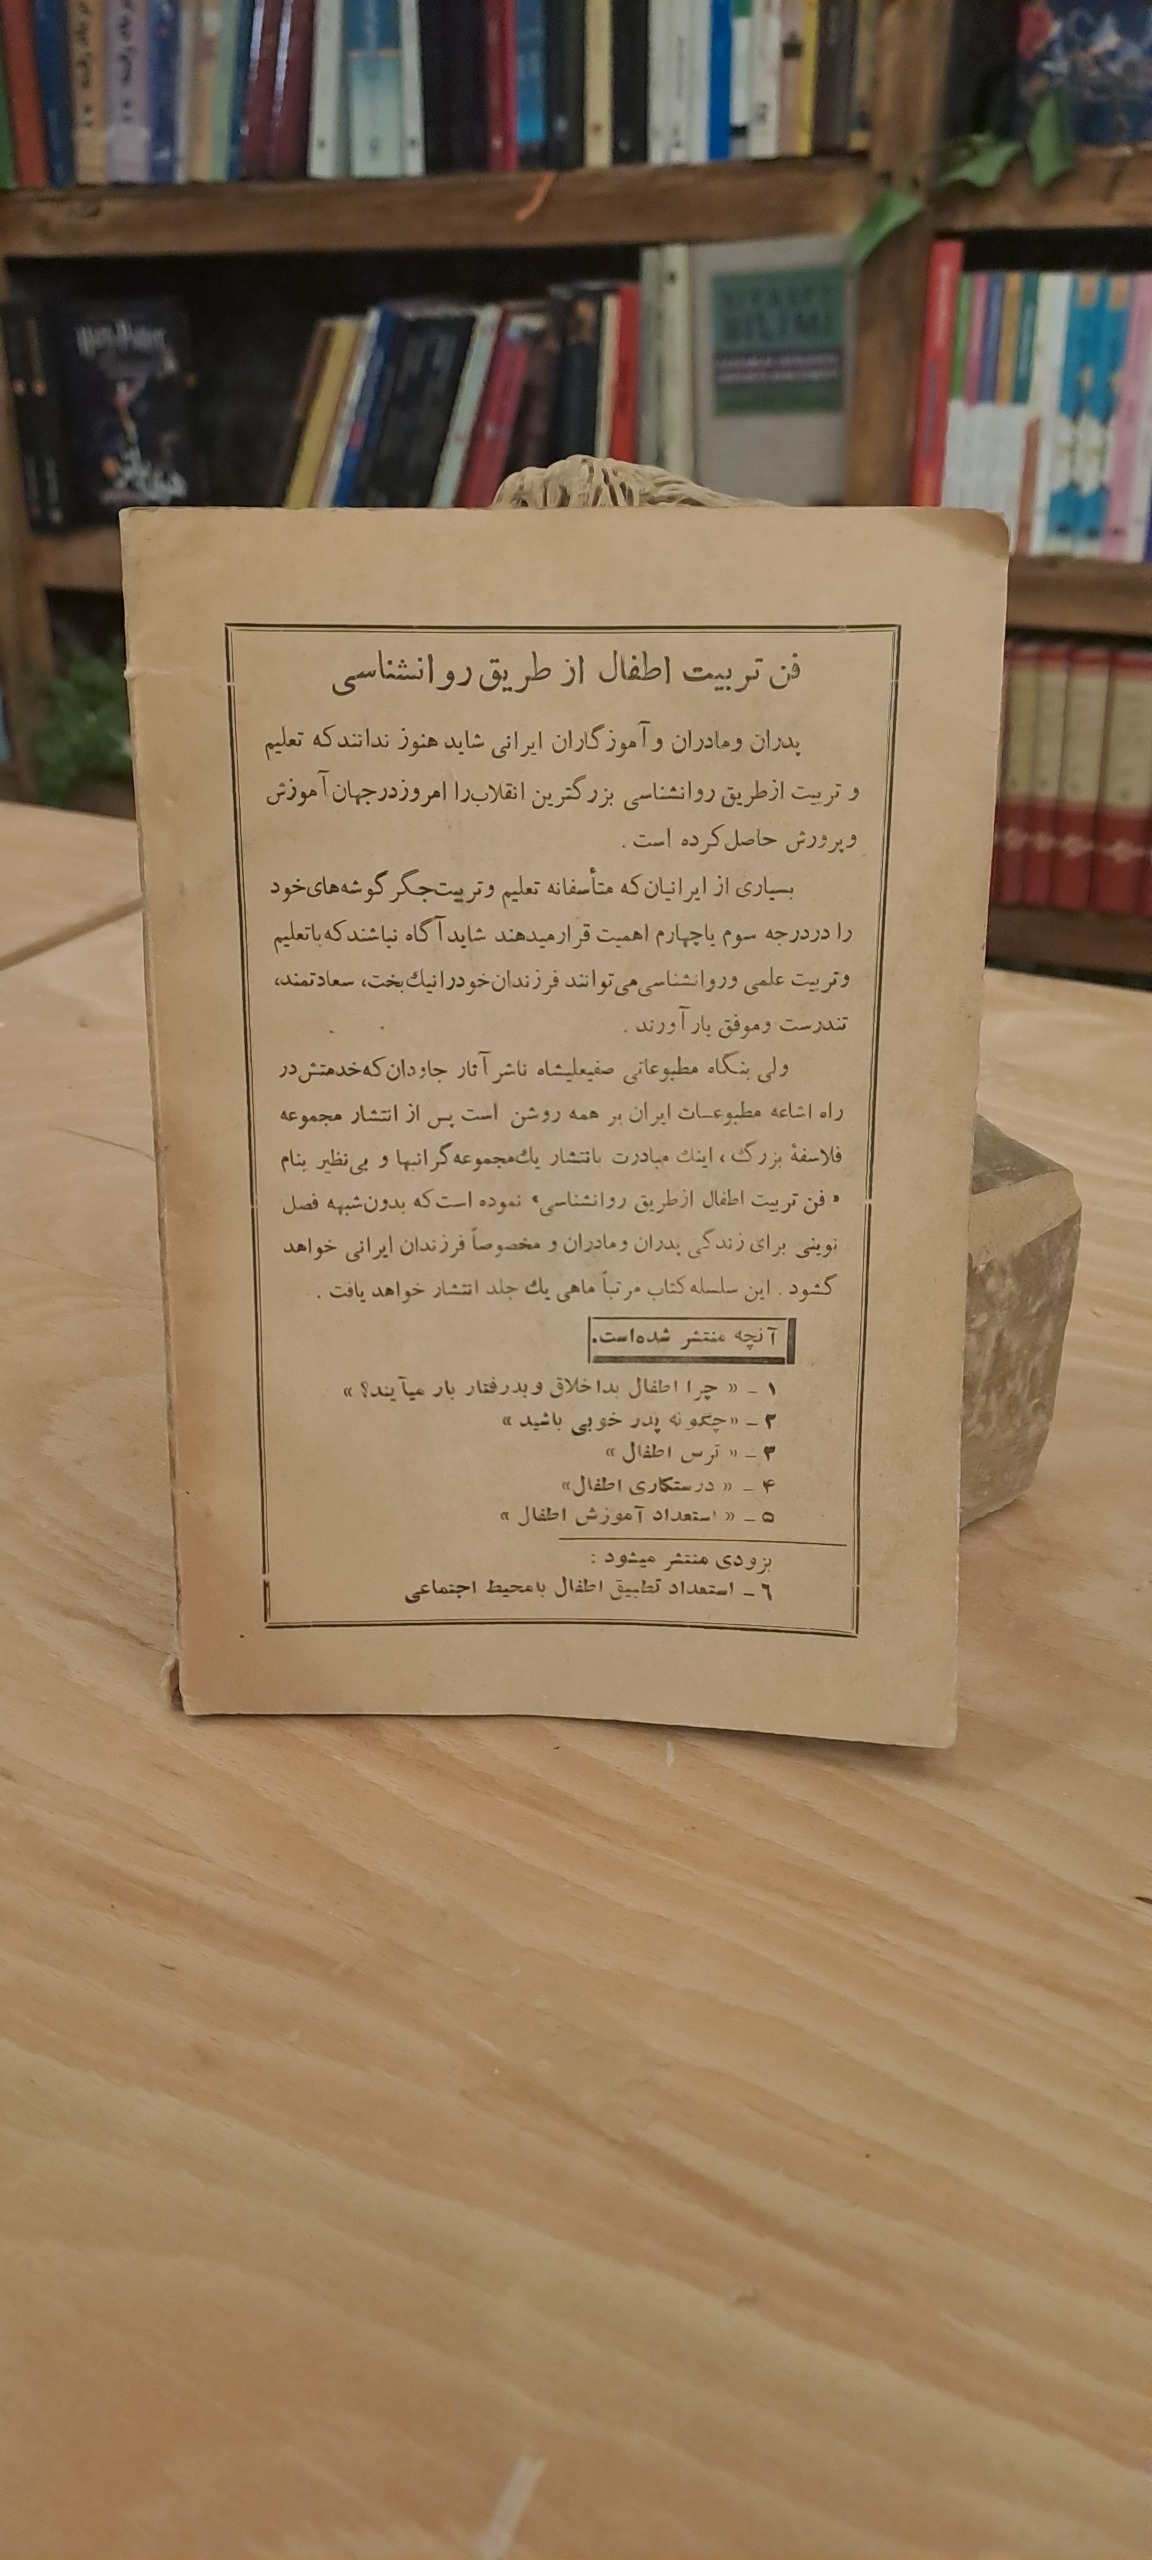 HARRY POTTER
SİYASET
BİLİMİ
فن تربیت اطفال از طریق روانشناسی
پدران ومادران و آموزگاران ایرانی شاید هنوز ندانند که تعلیم
و تربیت ازطریق روانشناسی بزرگترین انقلاب را امروزدرجهان آموزش
وپرورش حاصل کرده است .
بسیاری از ایرانیان که متأسفانه تعلیم وتربیت جگر گوشه‌های خود
را دردرجه سوم یاچهارم اهمیت قرار میدهند شاید آگاه نباشند که باتعلیم
وتربیت علمی وروانشناسی می‌توانند فرزندان خودرا نیك بخت، سعادتمند،
تندرست وموفق بار آورند .
ولی بنگاه مطبوعاتی صفیعلیشاه ناشر آثار جاودان که خدمتش در
راه اشاعه مطبوعات ایران بر همه روشن است پس از انتشار مجموعه
فلاسفهٔ بزرگ ، اینك مبادرت بانتشار یك مجموعه گرانبها و بی‌نظیر بنام
« فن تربیت اطفال ازطریق روانشناسی» نموده است که بدون شبهه فصل
نوینی برای زندگی پدران ومادران و مخصوصاً فرزندان ایرانی خواهد
گشود . این سلسله کتاب مرتباً ماهی یك جلد انتشار خواهد یافت .
آنچه منتشر شده است.
۱ ـ « چرا اطفال بداخلاق وبدرفتار بار میآیند؟ »
۲ ـ «چگونه پدر خوبی باشید »
۳ ـ « ترس اطفال »
۴ ـ « درستکاری اطفال»
۵ ـ « استعداد آموزش اطفال »
بزودی منتشر میشود :
٦ ـ استعداد تطبیق اطفال بامحیط اجتماعی